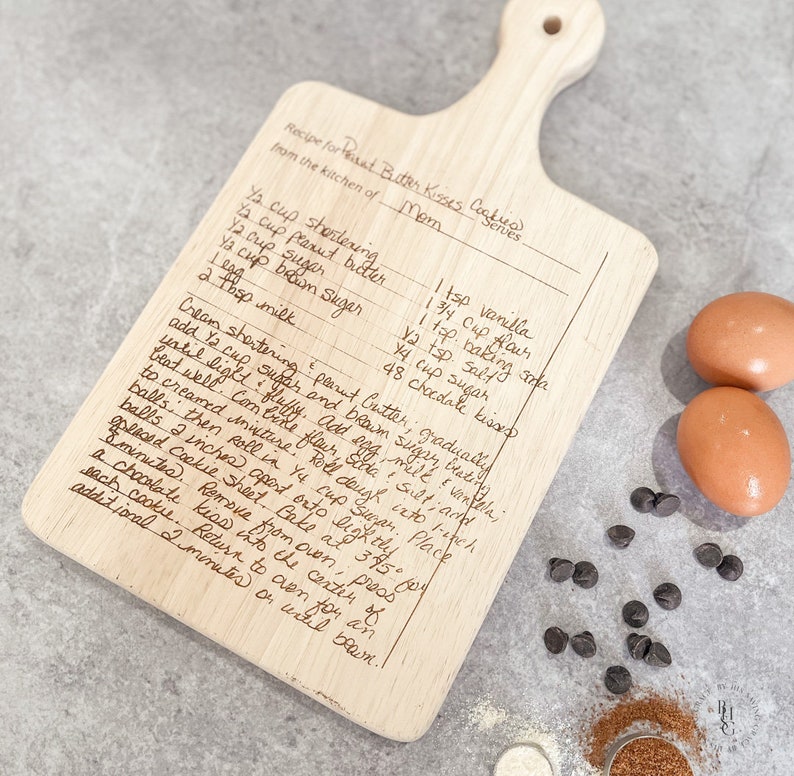 Recipe for Peanut Butter Kisses Cookies
from the kitchen of Mom Serves
½ cup shortening
½ cup peanut butter
½ cup sugar
½ cup brown sugar
1 egg
2 Tbsp milk
1 tsp vanilla
1 3/4 cup flour
1 tsp baking soda
½ tsp salt
¼ cup sugar
48 chocolate kisses
Cream shortening & peanut butter, gradually
add ½ cup sugar and brown sugar, beating
until light & fluffy. Add egg, milk & vanilla;
beat well. Combine flour, soda & salt, and
to creamed mixture. Roll dough into 1-inch
balls; then roll in ¼ cup sugar. Place
balls 2 inches apart onto lightly
greased cookie sheet. Bake at 375° for
8 minutes. Remove from oven, press
a chocolate kiss into the center of
each cookie. Return to oven for an
additional 2 minutes or until brown.